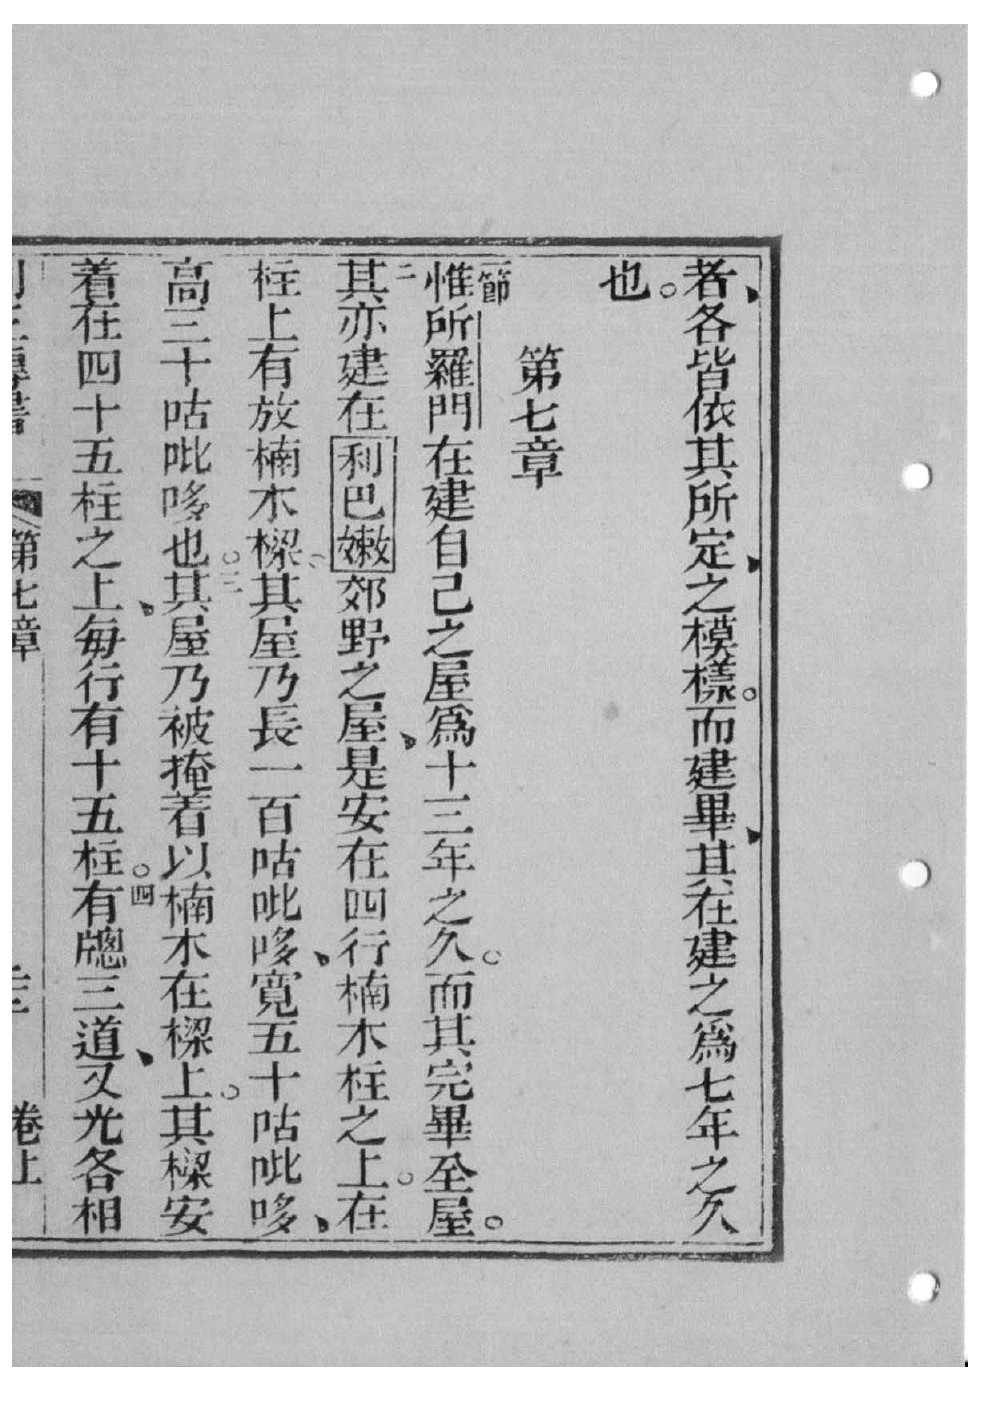 者各皆依其所定之模樣。而建畢其在建之為七年之久
也。
第七章
一節惟所羅門在建自己之屋為十三年之久。而其完畢至屋。
二其亦建在利巴嫩郊野之屋、是安在四行楠木柱之上。在
柱上有放楠木樑。三其屋乃長一百咕吡哆、寬五十咕吡哆、
高三十咕吡哆也、其屋乃被掩着以楠木在樑上。其樑安
着在四十五柱之上、每行有十五柱。四有牕三道、又光各相
第七章 卷上